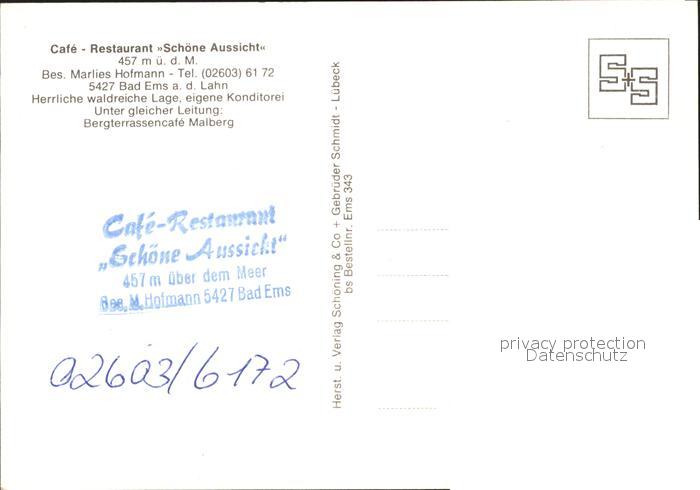 Café - Restaurant »Schöne Aussicht«
457 m ü. d. M.
Bes. Marlies Hofmann - Tel. (02603) 61 72
5427 Bad Ems a. d. Lahn
Herrliche waldreiche Lage, eigene Konditorei
Unter gleicher Leitung:
Bergterrassencafé Malberg
Café-Restaurant
„Schöne Aussicht"
457 m über dem Meer
Bes. M. Hofmann 5427 Bad Ems
02603/6172
Herst. u. Verlag Schöning & Co + Gebrüder Schmidt - Lübeck
bs Bestellnr. Ems 343
S+S
privacy protection
Datenschutz